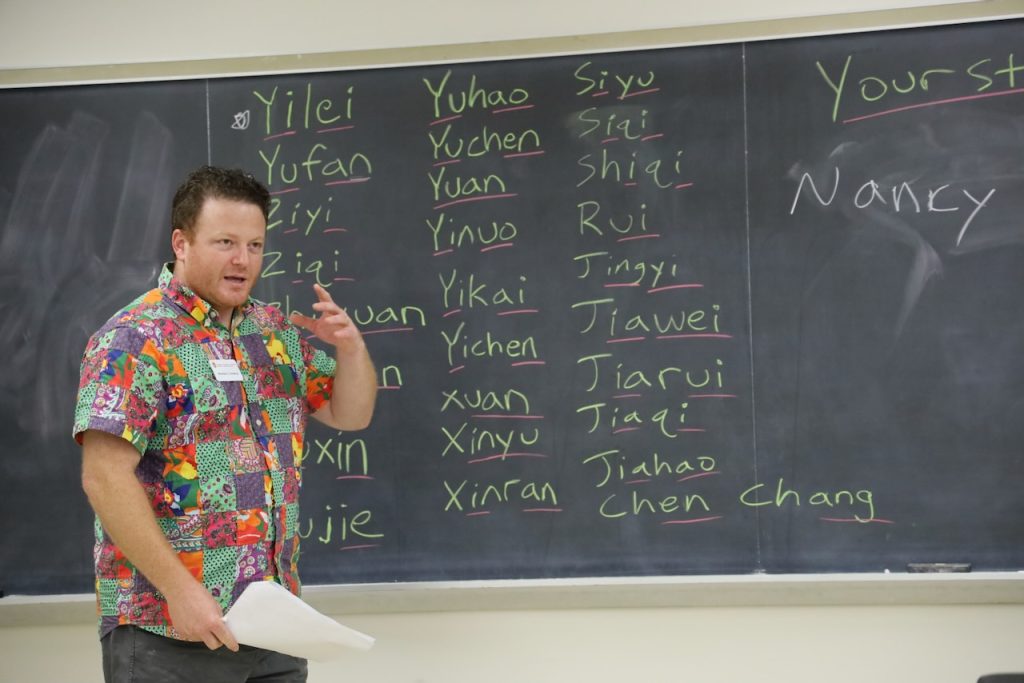 Yilei
Yufan
Ziyi
Ziqi
Yuhao
Yuchen
Yuan
Yinuo
Yikai
Yichen
xuan
Xinyu
Xinran
Siyu
Siqi
Shiqi
Rui
Jingyi
Jiawei
Jiarui
Jiaqi
Jiahao
Chen Chang
Your
Nancy